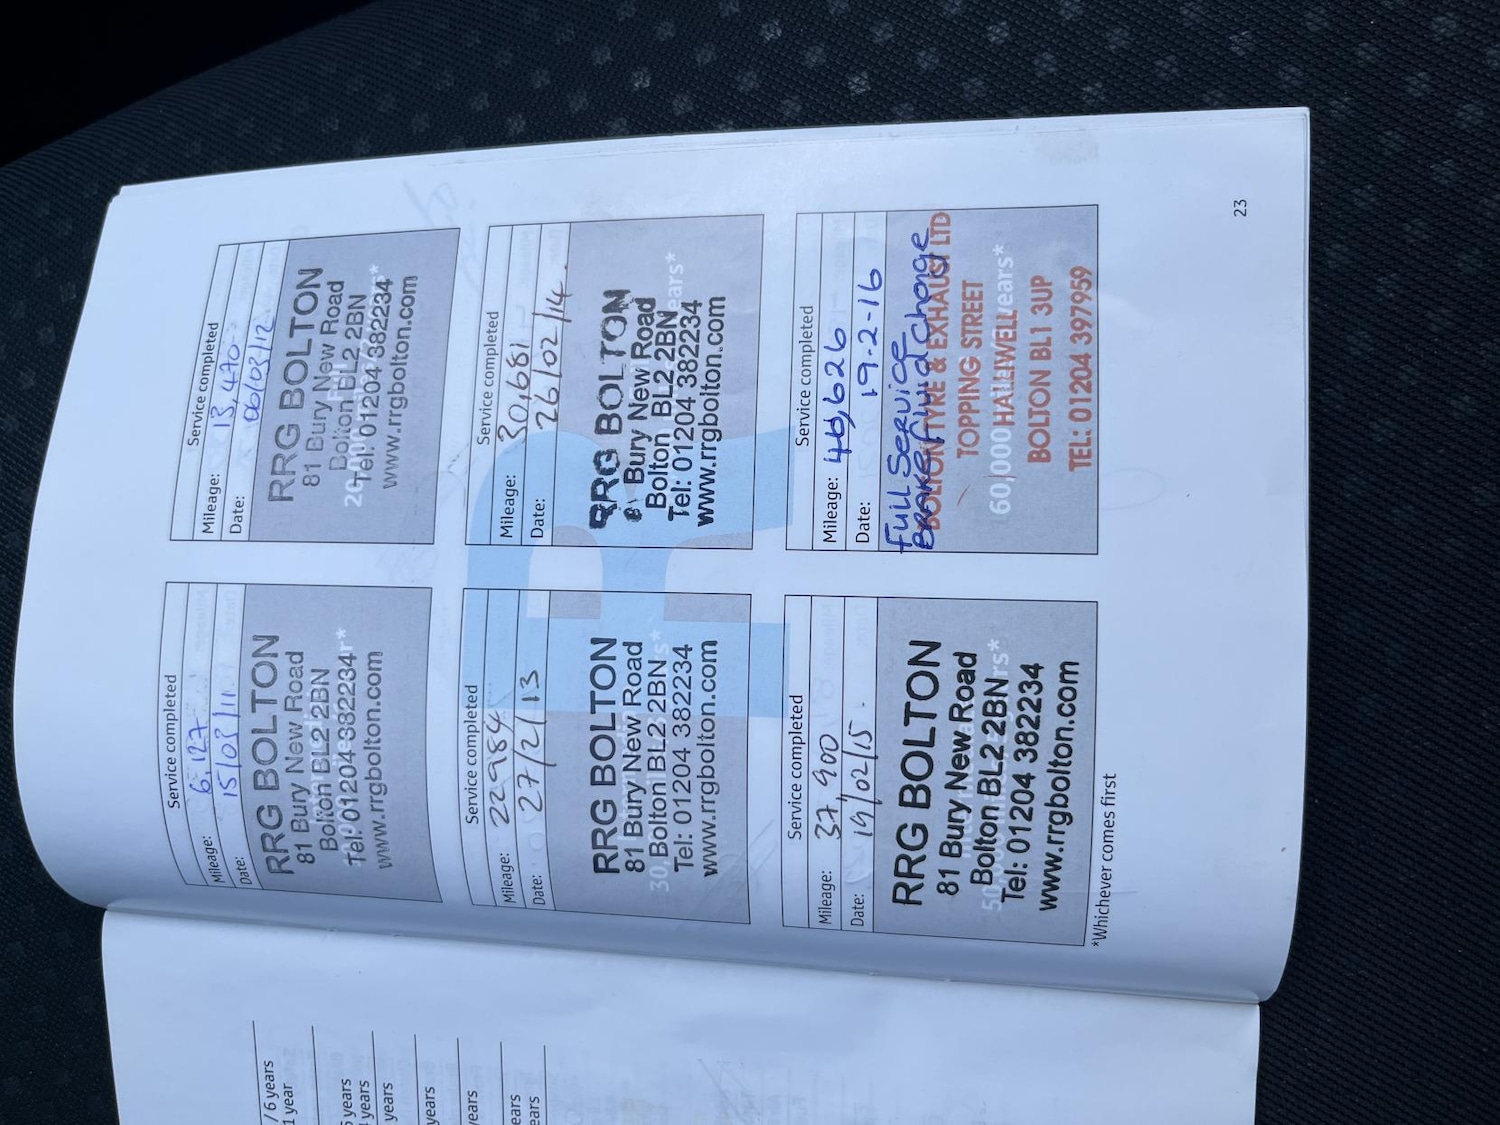 Service completed
Mileage: 6,127
Date: 15/03/11
RRG BOLTON
81 Bury New Road
Bolton BL2 2BN
Tel: 01204 382234
www.rrgbolton.com
Service completed
Mileage: 13,470
Date: 06/03/12
RRG BOLTON
81 Bury New Road
Bolton BL2 2BN
Tel: 01204 382234
www.rrgbolton.com
Service completed
Mileage: 22984
Date: 27/2/13
RRG BOLTON
81 Bury New Road
Bolton BL2 2BN
Tel: 01204 382234
www.rrgbolton.com
Service completed
Mileage: 30,681
Date: 26/02/14.
RRG BOLTON
81 Bury New Road
Bolton BL2 2BN
Tel: 01204 382234
www.rrgbolton.com
Service completed
Mileage: 37,900
Date: 19/02/15.
RRG BOLTON
81 Bury New Road
Bolton BL2 2BN
Tel: 01204 382234
www.rrgbolton.com
Service completed
Mileage: 46,626
Date: 19-2-16
Full Service
Brake Fluid Change
BOLTON TYRE & EXHAUST LTD
TOPPING STREET
HALLIWELL
60,000 years*
BOLTON BL1 3UP
TEL: 01204 397959
*Whichever comes first
23
/ 6 years
1 year
years
years
years
years
ears
ears